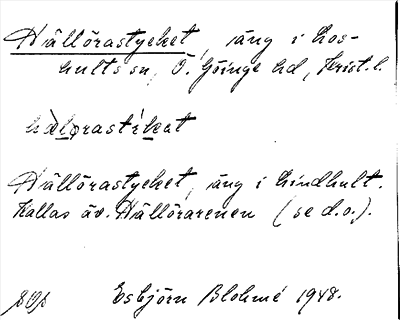 Hällörastycket, äng i Los-
hults sn, Ö. Göinge hd, Krist. l.
hälorastikat
Hällörastycket, äng i Lindhult.
Kallas äv. Hällörarenen (se d.o.).
Esbjörn Blohmé 1948.